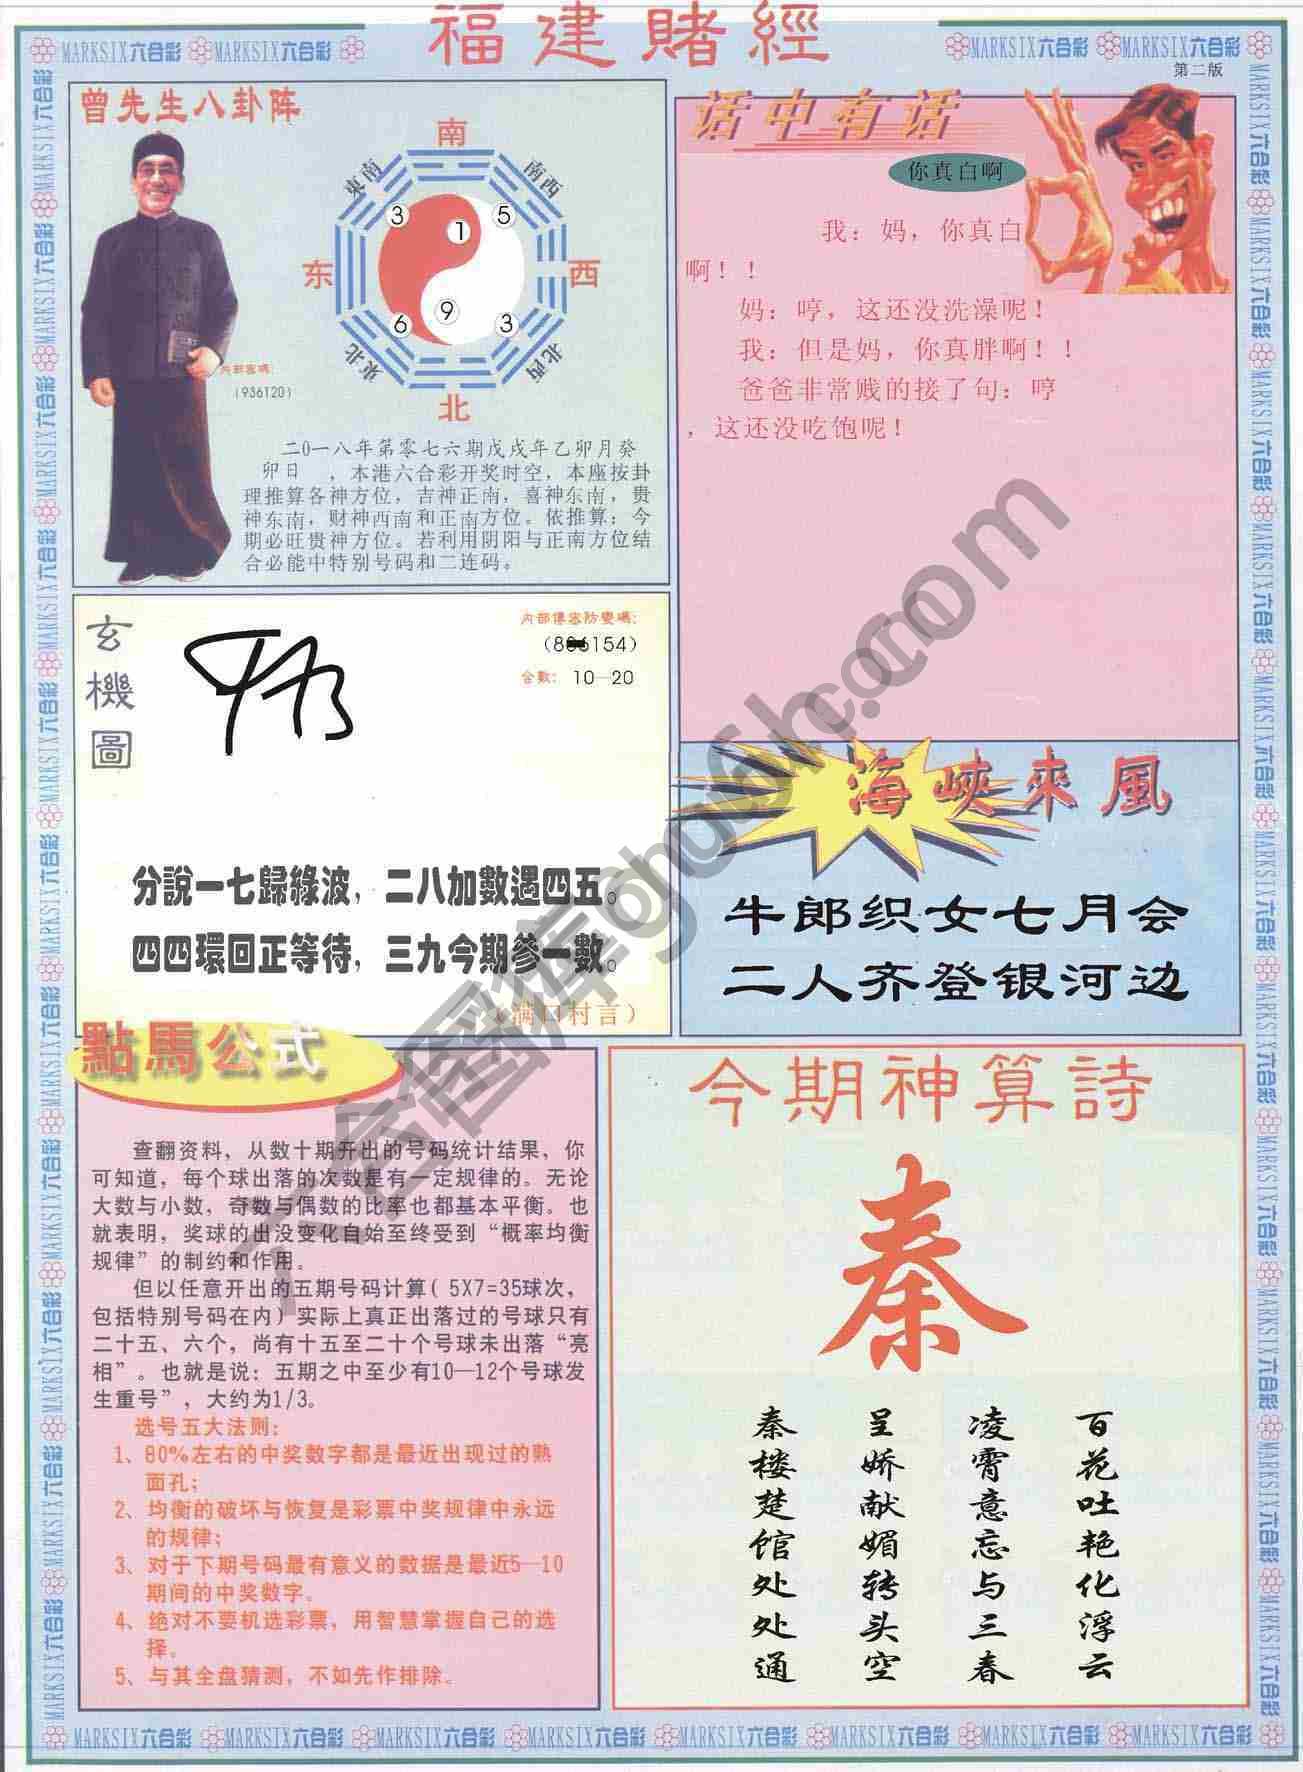 福建賭經
MARKSIX六合彩 MARKSIX六合彩 MARKSIX六合彩 MARKSIX六合彩
第二版
曾先生八卦阵
南
東南
南西
3
1
5
东
西
6
9
3
東北
北西
北
內部密碼：
(936120)
二0一八年第零七六期戊戌年乙卯月癸
卯日　，本港六合彩开奖时空，本座按卦
理推算各神方位，吉神正南，喜神东南，贵
神东南，财神西南和正南方位。依推算：今
期必旺贵神方位。若利用阴阳与正南方位结
合必能中特别号码和二连码。
话中有话
你真白啊
我：妈，你真白
啊！！
妈：哼，这还没洗澡呢！
我：但是妈，你真胖啊！！
爸爸非常贱的接了句：哼
，这还没吃饱呢！
玄機圖
內部傳密防變碼：
合數：10—20
分說一七歸綠波，二八加數遇四五。
四四環回正等待，三九今期參一數。
（满口村言）
海峽來風
牛郎织女七月会
二人齐登银河边
點馬公式
查翻资料，从数十期开出的号码统计结果，你
可知道，每个球出落的次数是有一定规律的。无论
大数与小数，奇数与偶数的比率也都基本平衡。也
就表明，奖球的出没变化自始至终受到“概率均衡
规律”的制约和作用。
但以任意开出的五期号码计算（5X7=35球次，
包括特别号码在内）实际上真正出落过的号球只有
二十五、六个，尚有十五至二十个号球未出落“亮
相”。也就是说：五期之中至少有10—12个号球发
生重号”，大约为1/3。
选号五大法则：
1、80%左右的中奖数字都是最近出现过的熟
面孔；
2、均衡的破坏与恢复是彩票中奖规律中永远
的规律；
3、对于下期号码最有意义的数据是最近5—10
期间的中奖数字。
4、绝对不要机选彩票，用智慧掌握自己的选
择。
5、与其全盘猜测，不如先作排除。
今期神算詩
秦
秦楼楚馆处处通
呈娇献媚转头空
凌霄意忘与三春
百花吐艳化浮云
MARKSIX六合彩 MARKSIX六合彩 MARKSIX六合彩 MARKSIX六合彩 MARKSIX六合彩 MARKSIX六合彩 MARKSIX六合彩 MARKSIX六合彩